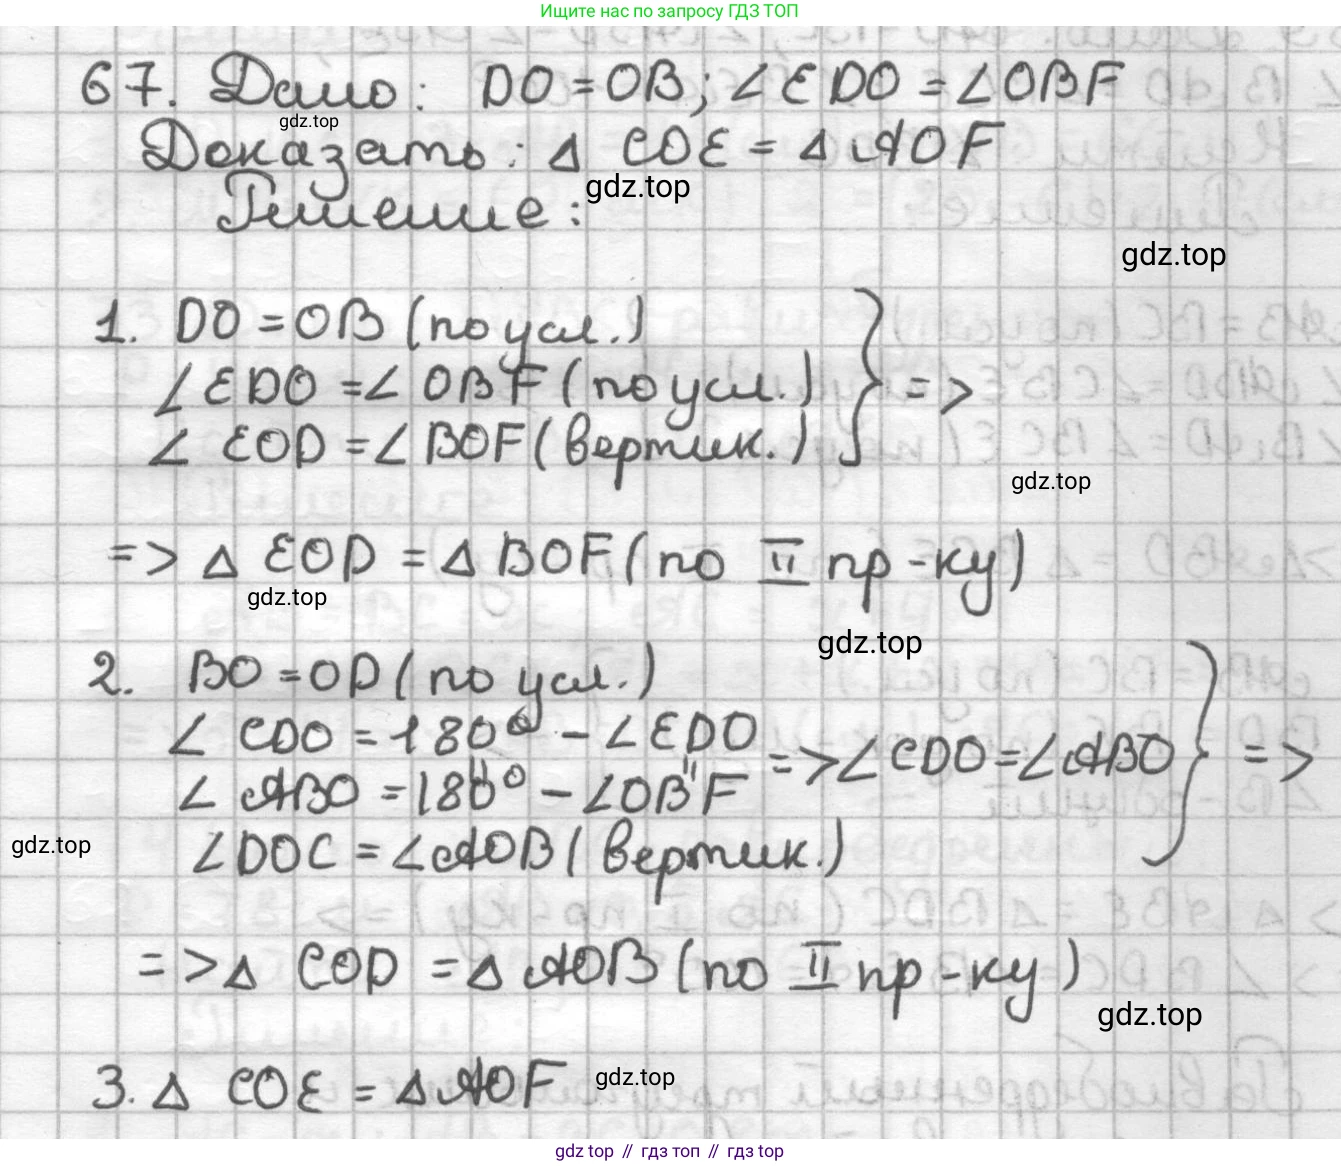 Ищите нас по запросу ГДЗ ТОП
67. Дано: DO = OB; ∠EDO = ∠OBF
gdz.top
Доказать: △ COE = △ AOF
gdz.top
Решение:
gdz.top
1. DO = OB (по усл.)
∠EDO = ∠OBF (по усл.) } =>
∠ EOD = ∠BOF (вертик.)
gdz.top
=> △ EOD = △ BOF (по II пр-ку)
gdz.top
gdz.top
2. BO = OD (по усл.)
∠ CDO = 180° – ∠EDO
=> ∠CDO = ∠ABO } =>
∠ ABO = 180° – ∠OBF
gdz.top
∠DOC = ∠AOB (вертик.)
=> △ COD = △ AOB (по II пр-ку)
gdz.top
3. △ COE = △ AOF
gdz.top
gdz.top // гдз топ // гдз top